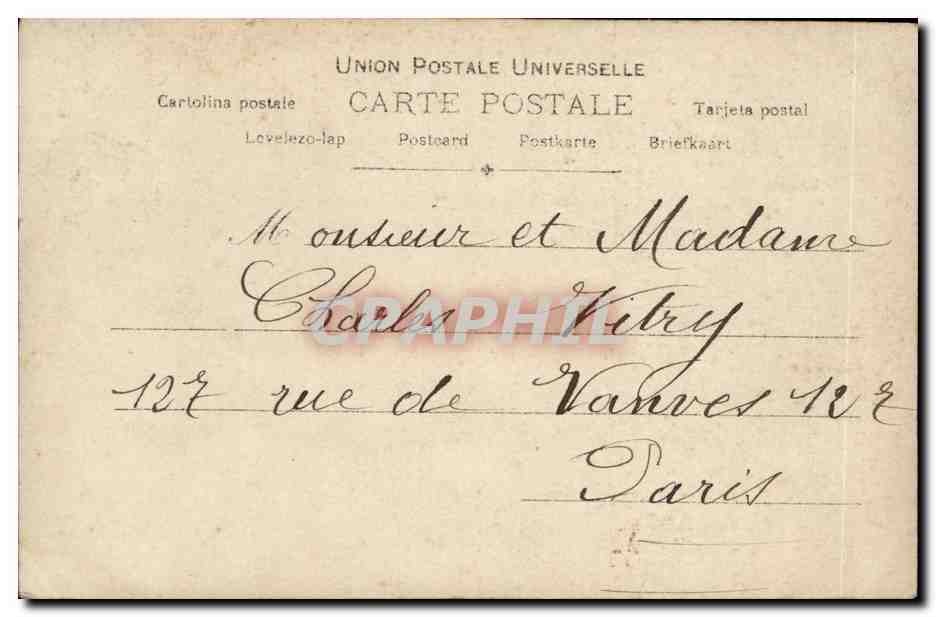 UNION POSTALE UNIVERSELLE
Cartolina postale CARTE POSTALE Tarjeta postal
Levelezo-lap Postcard Postkarte Briefkaart
Monsieur et Madame
Charles Vitry
CPAPHIL
127 rue de Vanves 127
Paris